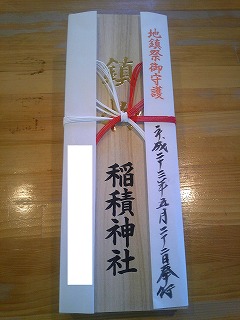 地鎮祭御守護
平成二十三年五月二十二日奉行
鎮
稲積神社